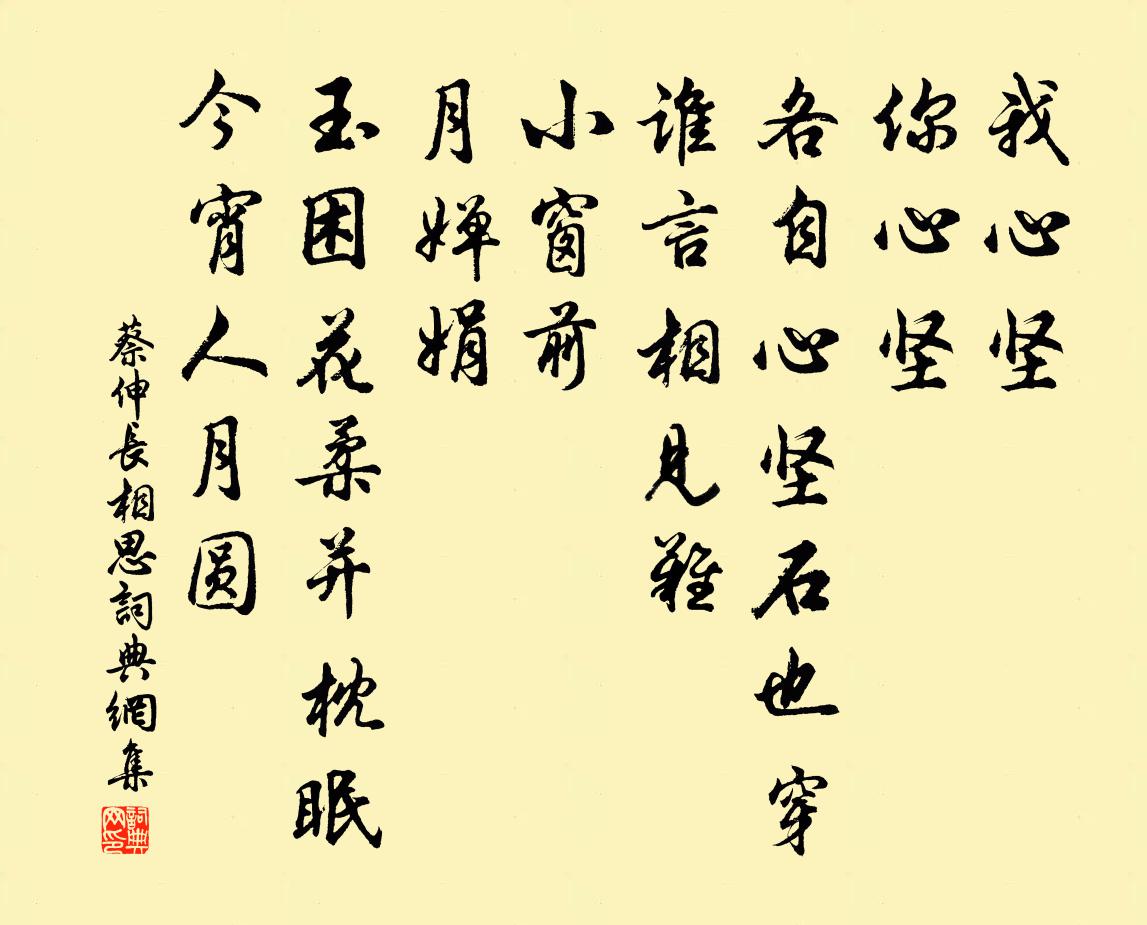 我心坚
你心坚
各自心坚石也穿
谁言相见难
小窗前
月婵娟
玉困花柔并枕眠
今宵人月圆
蔡伸長相思詞典網集
詞典
网印